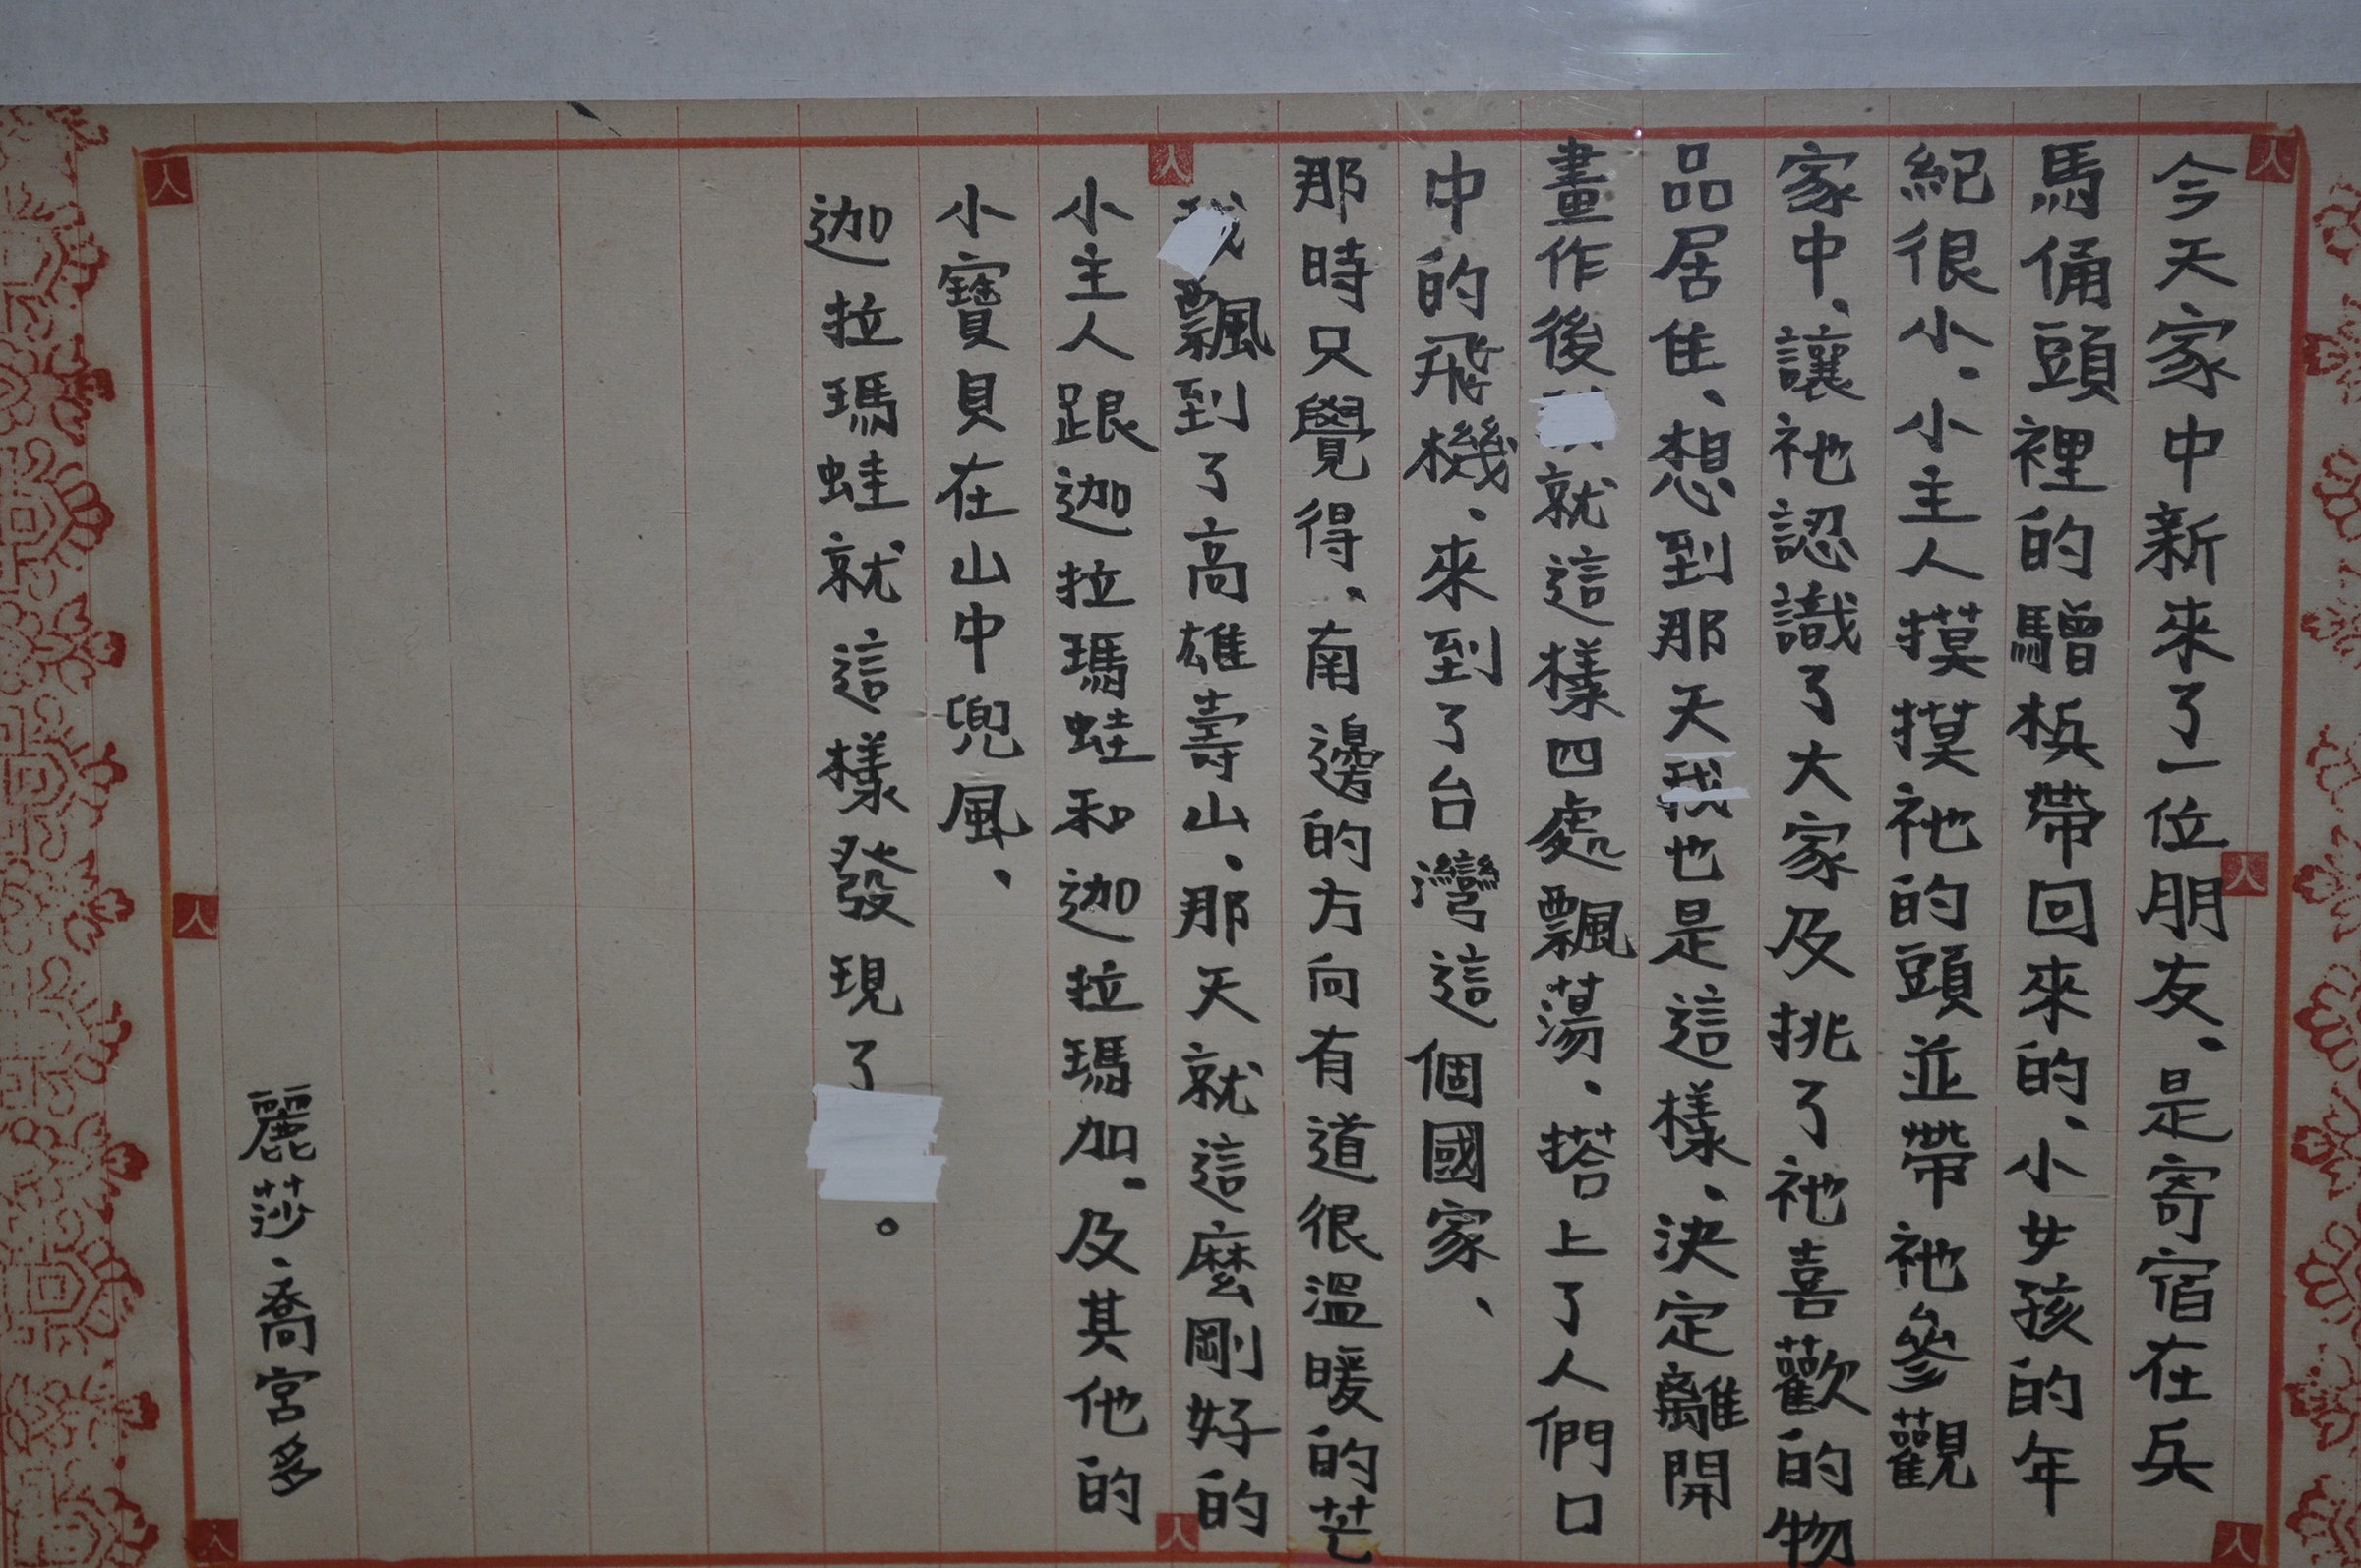 今天家中新來了一位朋友.是寄宿在兵
馬俑頭裡的驓梹帶回來的、小女孩的年
紀很小.小主人摸摸祂的頭並帶祂參觀
家中.讓祂認識了大家及挑了祂喜歡的物
品居住、想到那天我也是這樣.決定離開
畫作後就這樣四處飄蕩.搭上了人們口
中的飛機.來到了台灣這個國家、
那時只覺得.南邊的方向有道很溫暖的芒
飄到了高雄壽山.那天就這麼剛好的
小主人跟迦拉瑪蛙和迦拉瑪加.及其他的
小寶貝在山中兜風、
迦拉瑪蛙就這樣發現了。
麗莎·喬宮多
人
人
人
人
人
人
人
人